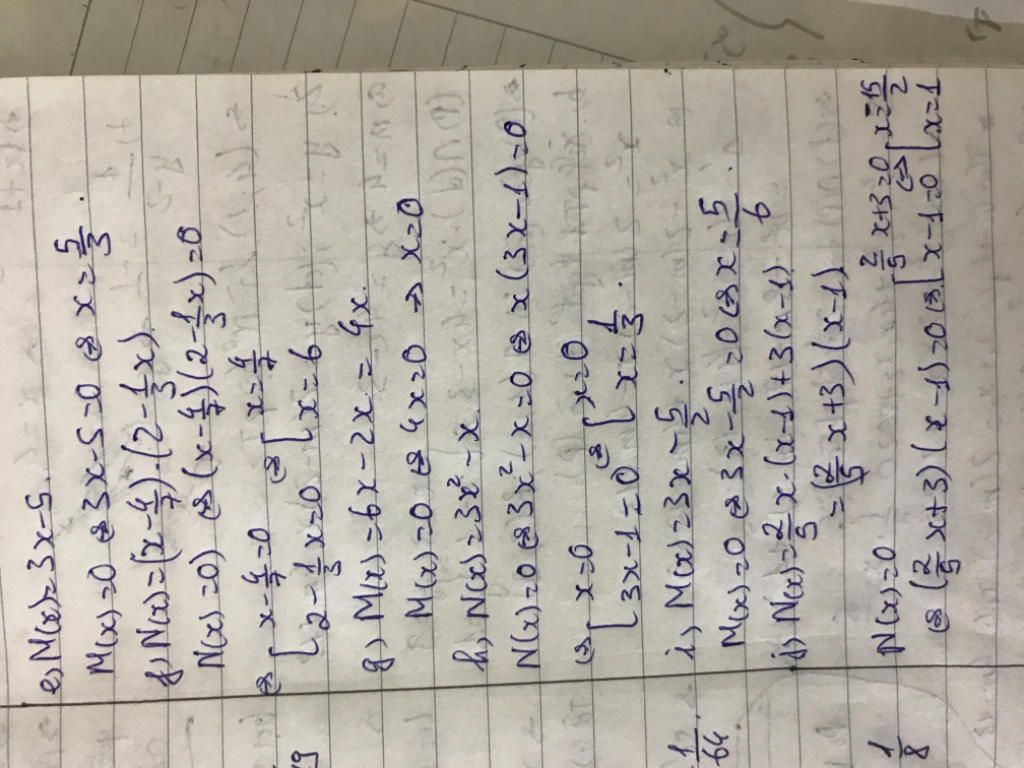 e) M(x) = 3x - 5.
M(x) = 0 ⇔ 3x - 5 = 0 ⇔ x = 5/3.
f) N(x) = (x - 4/7).(2 - 1/3x)
N(x) = 0) ⇔ (x - 4/7)(2 - 1/3x) = 0
⇔ [ x - 4/7 = 0 ⇔ [ x = 4/7
2 - 1/3x = 0 x = 6
g) M(x) = 6x - 2x = 4x.
M(x) = 0 ⇔ 4x = 0 → x = 0
h) N(x) = 3x² - x
N(x) = 0 ⇔ 3x² - x = 0 ⇔ x(3x - 1) = 0
⇔ [ x = 0 ⇔ [ x = 0
3x - 1 = 0 x = 1/3.
i) M(x) = 3x - 5/2.
M(x) = 0 ⇔ 3x - 5/2 = 0 ⇔ x = 5/6.
j) N(x) = 2/5x.(x - 1) + 3(x - 1)
= (2/5x + 3)(x - 1)
N(x) = 0
⇔ (2/5x + 3)(x - 1) = 0 ⇔ [ 2/5x + 3 = 0 ⇔ [ x = -15/2
x - 1 = 0 x = 1
1/64.
1/8